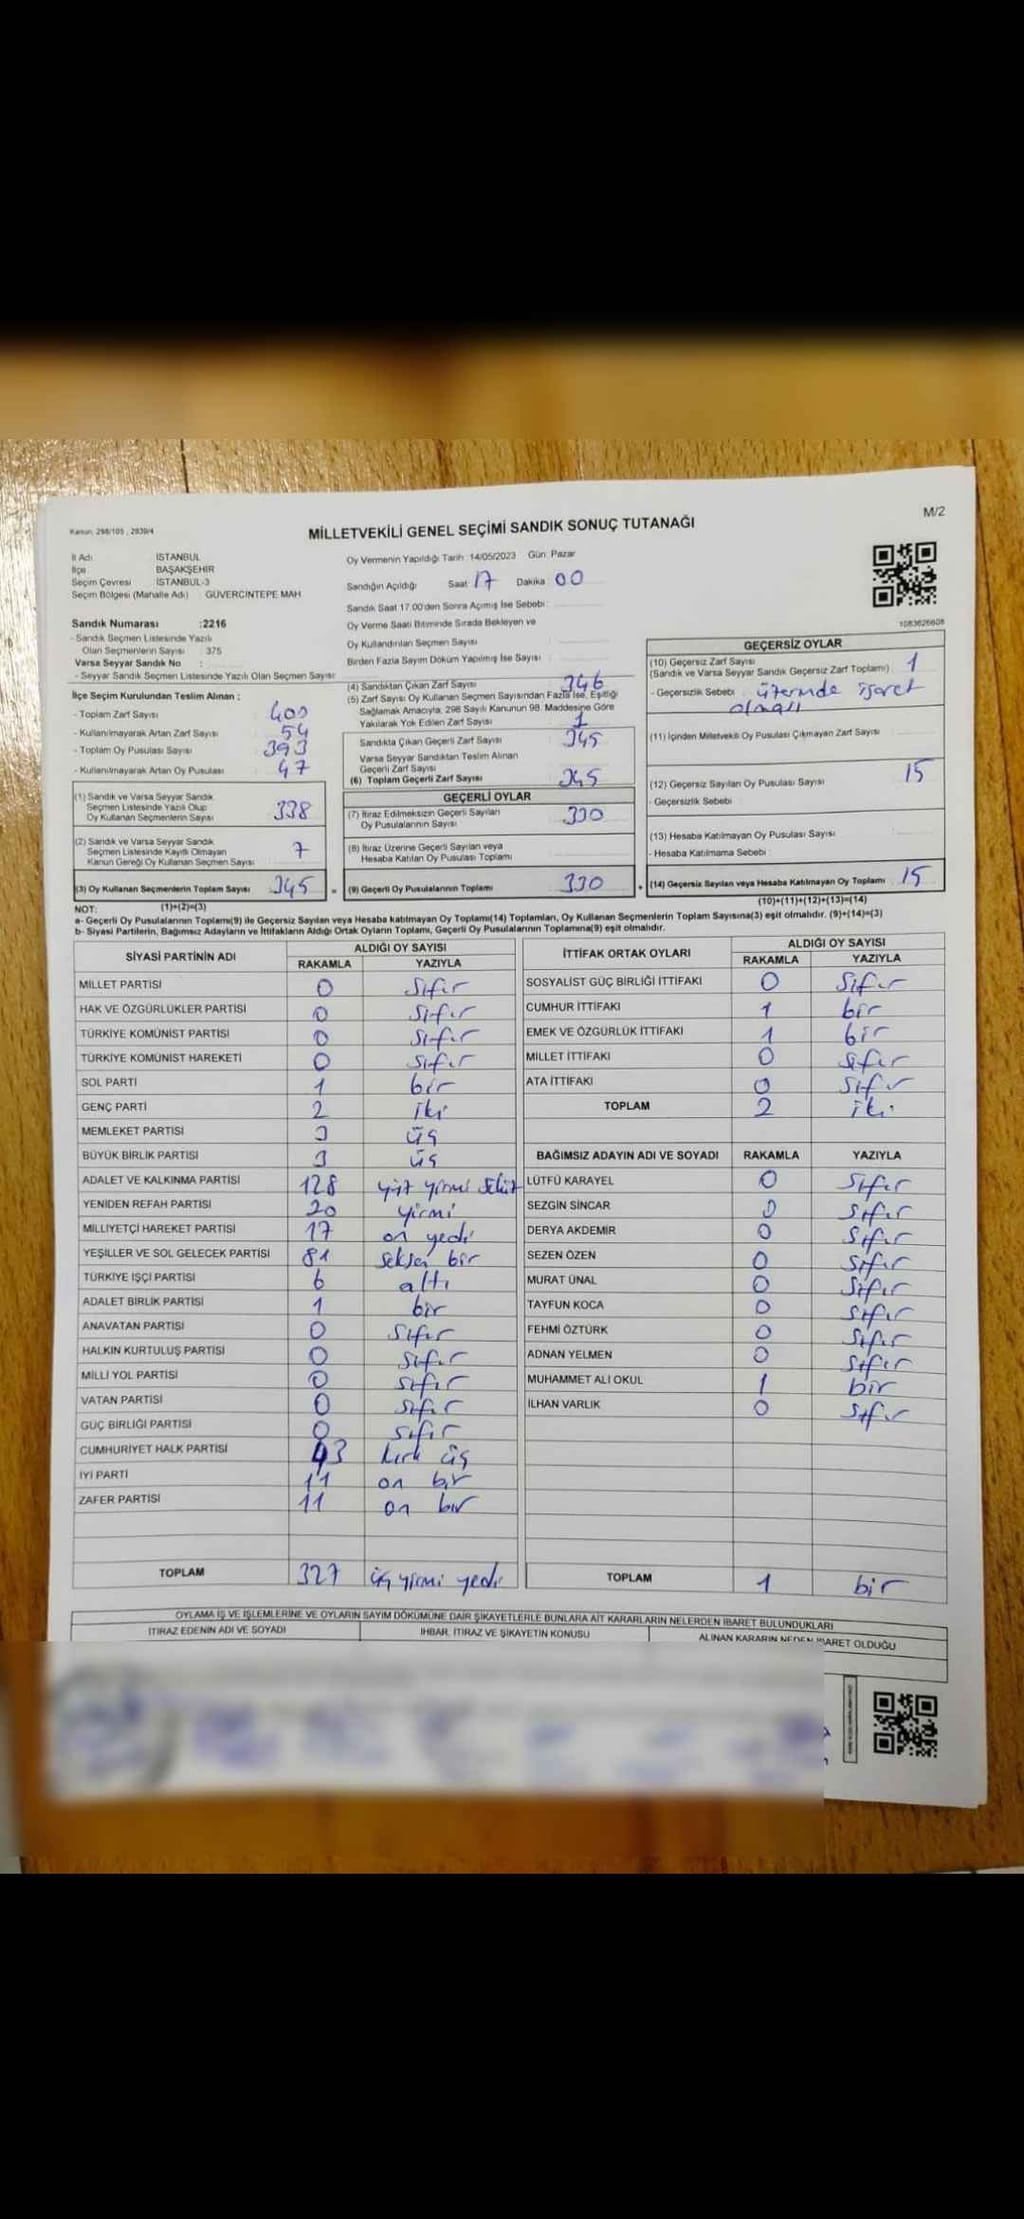 Kanun; 298/105 , 2839/4
MİLLETVEKİLİ GENEL SEÇİMİ SANDIK SONUÇ TUTANAĞI
M/2
İl Adı İSTANBUL
İlçe BAŞAKŞEHİR
Seçim Çevresi İSTANBUL-3
Seçim Bölgesi (Mahalle Adı) GÜVERCİNTEPE MAH
Sandık Numarası :2216
- Sandık Seçmen Listesinde Yazılı
Olan Seçmenlerin Sayısı 375
Varsa Seyyar Sandık No :
- Seyyar Sandık Seçmen Listesinde Yazılı Olan Seçmen Sayısı
Oy Vermenin Yapıldığı Tarih: 14/05/2023 Gün: Pazar
Sandığın Açıldığı Saat 17 Dakika 00
Sandık Saat 17.00'den Sonra Açımış İse Sebebi :
Oy Verme Saati Bitiminde Sırada Bekleyen ve
Oy Kullandırılan Seçmen Sayısı :
Birden Fazla Sayım Döküm Yapılmış İse Sayısı :
1083626608
İlçe Seçim Kurulundan Teslim Alınan :
- Toplam Zarf Sayısı : 400
- Kullanılmayarak Artan Zarf Sayısı : 54
- Toplam Oy Pusulası Sayısı : 393
- Kullanılmayarak Artan Oy Pusulası : 47
(1) Sandık ve Varsa Seyyar Sandık
Seçmen Listesinde Yazılı Olup
Oy Kullanan Seçmenlerin Sayısı 338
(2) Sandık ve Varsa Seyyar Sandık
Seçmen Listesinde Kayıtlı Olmayan
Kanun Gereği Oy Kullanan Seçmen Sayısı : 7
(3) Oy Kullanan Seçmenlerin Toplam Sayısı : 345
(4) Sandıktan Çıkan Zarf Sayısı 346
(5) Zarf Sayısı Oy Kullanan Seçmen Sayısından Fazla İse, Eşitliği
Sağlamak Amacıyla, 298 Sayılı Kanunun 98. Maddesine Göre
Yakılarak Yok Edilen Zarf Sayısı 1
Sandıkta Çıkan Geçerli Zarf Sayısı 345
Varsa Seyyar Sandıktan Teslim Alınan
Geçerli Zarf Sayısı
(6) Toplam Geçerli Zarf Sayısı 345
GEÇERLİ OYLAR
(7) İtiraz Edilmeksizin Geçerli Sayılan
Oy Pusulalarının Sayısı : 330
(8) İtiraz Üzerine Geçerli Sayılan veya
Hesaba Katılan Oy Pusulası Toplamı :
= (9) Geçerli Oy Pusulalarının Toplamı 330
GEÇERSİZ OYLAR
(10) Geçersiz Zarf Sayısı 1
(Sandık ve Varsa Seyyar Sandık Geçersiz Zarf Toplamı)
- Geçersizlik Sebebi : üzerinde işaret
olması
(11) İçinden Milletvekili Oy Pusulası Çıkmayan Zarf Sayısı :
(12) Geçersiz Sayılan Oy Pusulası Sayısı 15
- Geçersizlik Sebebi
(13) Hesaba Katılmayan Oy Pusulası Sayısı :
- Hesaba Katılmama Sebebi :
+ (14) Geçersiz Sayılan veya Hesaba Katılmayan Oy Toplamı : 15
NOT: (1)+(2)=(3) (10)+(11)+(12)+(13)=(14)
a- Geçerli Oy Pusulalarının Toplamı(9) ile Geçersiz Sayılan veya Hesaba katılmayan Oy Toplamı(14) Toplamları, Oy Kullanan Seçmenlerin Toplam Sayısına(3) eşit olmalıdır. (9)+(14)=(3)
b- Siyasi Partilerin, Bağımsız Adayların ve İttifakların Aldığı Ortak Oyların Toplamı, Geçerli Oy Pusulalarının Toplamına(9) eşit olmalıdır.
SİYASİ PARTİNİN ADI ALDIĞI OY SAYISI
RAKAMLA YAZIYLA
MİLLET PARTİSİ 0 sıfır
HAK VE ÖZGÜRLÜKLER PARTİSİ 0 sıfır
TÜRKİYE KOMÜNİST PARTİSİ 0 sıfır
TÜRKİYE KOMÜNİST HAREKETİ 0 sıfır
SOL PARTİ 1 bir
GENÇ PARTİ 2 iki
MEMLEKET PARTİSİ 3 üç
BÜYÜK BİRLİK PARTİSİ 3 üç
ADALET VE KALKINMA PARTİSİ 128 yüz yirmi sekiz
YENİDEN REFAH PARTİSİ 20 yirmi
MİLLİYETÇİ HAREKET PARTİSİ 17 on yedi
YEŞİLLER VE SOL GELECEK PARTİSİ 81 seksen bir
TÜRKİYE İŞÇİ PARTİSİ 6 altı
ADALET BİRLİK PARTİSİ 1 bir
ANAVATAN PARTİSİ 0 sıfır
HALKIN KURTULUŞ PARTİSİ 0 sıfır
MİLLİ YOL PARTİSİ 0 sıfır
VATAN PARTİSİ 0 sıfır
GÜÇ BİRLİĞİ PARTİSİ 0 sıfır
CUMHURİYET HALK PARTİSİ 43 kırk üç
İYİ PARTİ 11 on bir
ZAFER PARTİSİ 11 on bir
TOPLAM 327 üç yirmi yedi
İTTİFAK ORTAK OYLARI ALDIĞI OY SAYISI
RAKAMLA YAZIYLA
SOSYALİST GÜÇ BİRLİĞİ İTTİFAKI 0 sıfır
CUMHUR İTTİFAKI 1 bir
EMEK VE ÖZGÜRLÜK İTTİFAKI 1 bir
MİLLET İTTİFAKI 0 sıfır
ATA İTTİFAKI 0 sıfır
TOPLAM 2 iki
BAĞIMSIZ ADAYIN ADI VE SOYADI RAKAMLA YAZIYLA
LÜTFÜ KARAYEL 0 sıfır
SEZGİN SİNCAR 0 sıfır
DERYA AKDEMİR 0 sıfır
SEZEN ÖZEN 0 sıfır
MURAT ÜNAL 0 sıfır
TAYFUN KOCA 0 sıfır
FEHMİ ÖZTÜRK 0 sıfır
ADNAN YELMEN 0 sıfır
MUHAMMET ALİ OKUL 1 bir
İLHAN VARLIK 0 sıfır
TOPLAM 1 bir
OYLAMA İŞ VE İŞLEMLERİNE VE OYLARIN SAYIM DÖKÜMÜNE DAİR ŞİKAYETLERLE BUNLARA AİT KARARLARIN NELERDEN İBARET BULUNDUKLARI
İTİRAZ EDENİN ADI VE SOYADI İHBAR, İTİRAZ VE ŞİKAYETİN KONUSU ALINAN KARARIN NEDEN İBARET OLDUĞU